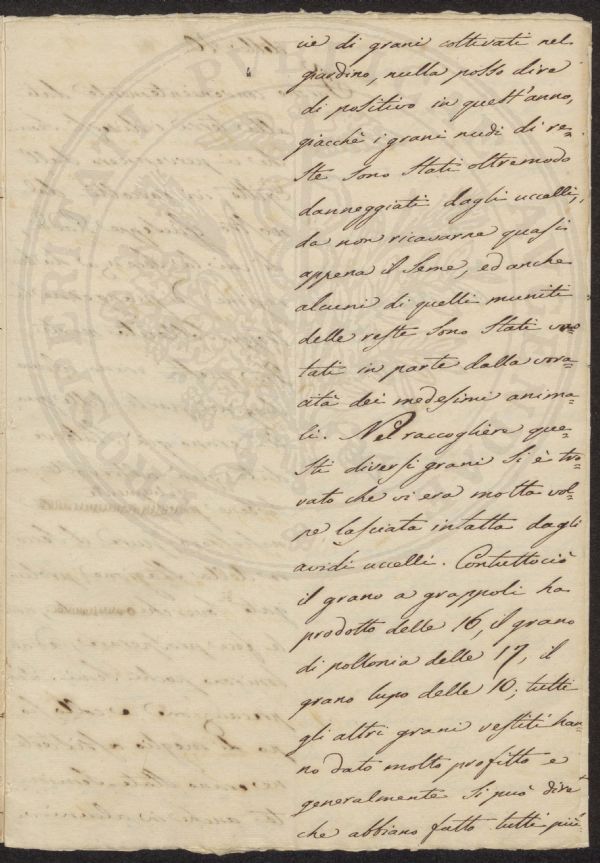 cie di grani coltivati nel
giardino, nulla posso dire
di positivo in quest'anno,
giacchè i grani nudi di re=
ste sono stati oltremodo
danneggiati dagli uccelli,
da non ricavarne quasi
appena il seme, ed anche
alcuni di quelli muniti
delle reste sono stati vuo
tati in parte dalla vora=
cità dei medesimi anima=
li. Nel raccogliere que=
sti diversi grani si è tro=
vato che vi era molta vol=
pe lasciata intatta dagli
avidi uccelli. Contuttociò
il grano a grappoli ha
prodotto delle 16, il grano
di pollonia delle 17, il
grano lupo delle 10; tutti
gli altri grani vestiti han=
no dato molto profitto e
generalmente si può dire
che abbiano fatto tutti più
PROSPERITATI PUBLICAE